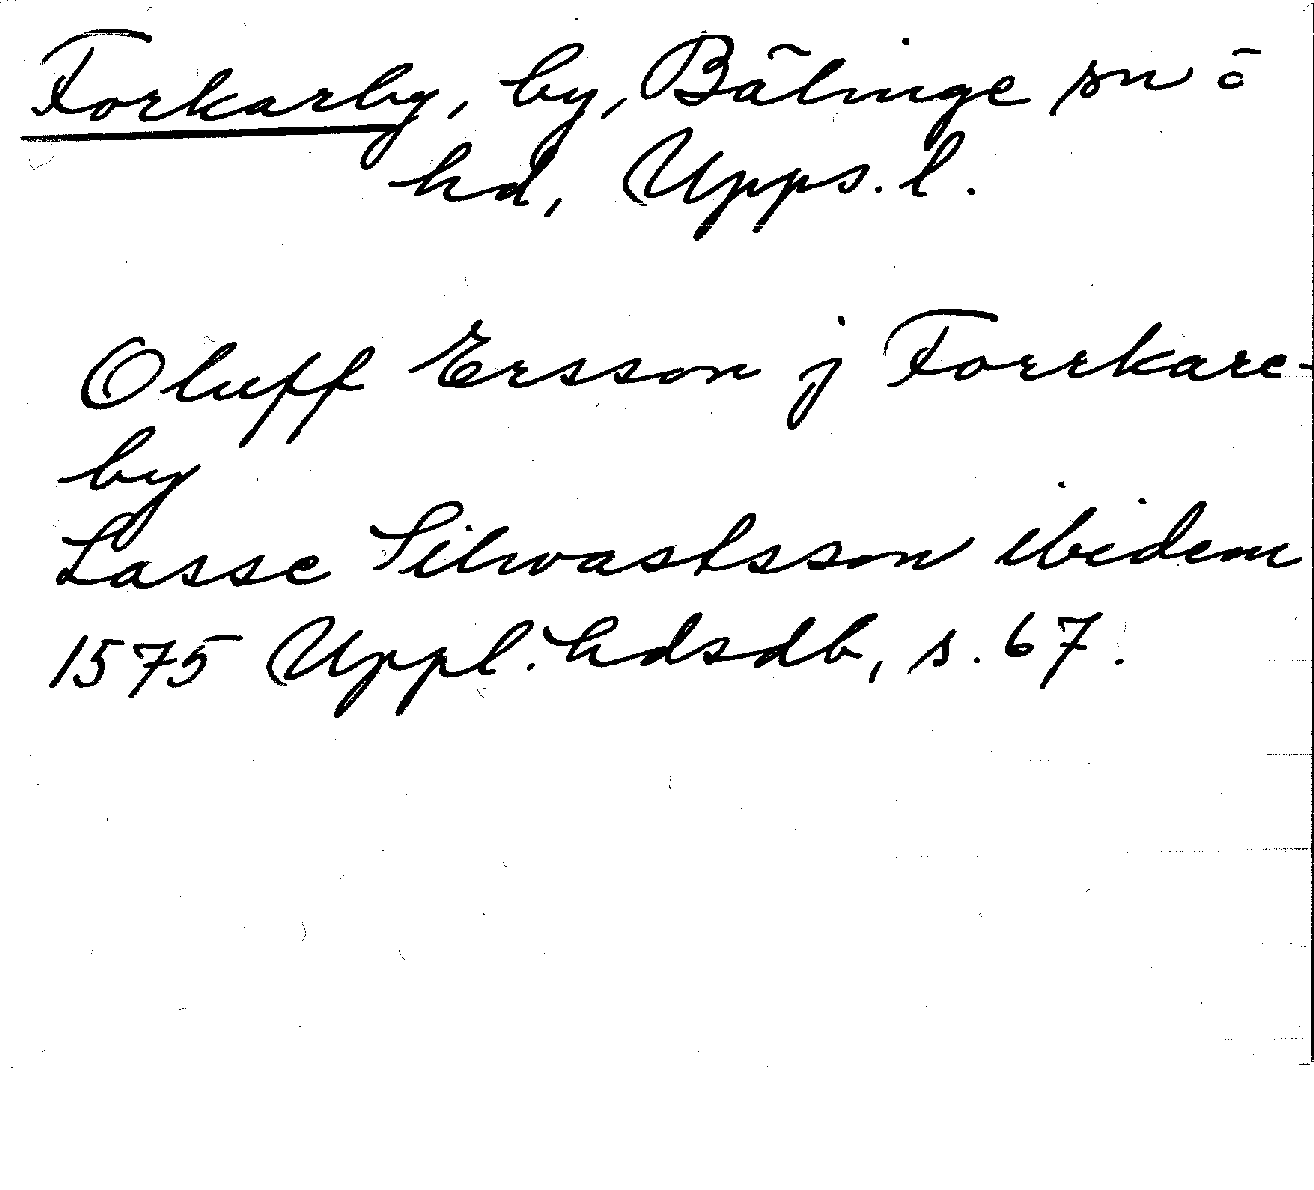 Forkarby, by, Bälinge sn o
hd, Upps. l.
Oluff Ersson j Forrkare-
by
Lasse Silwastsson ibidem
1575 Uppl. hdsdb, s. 67.